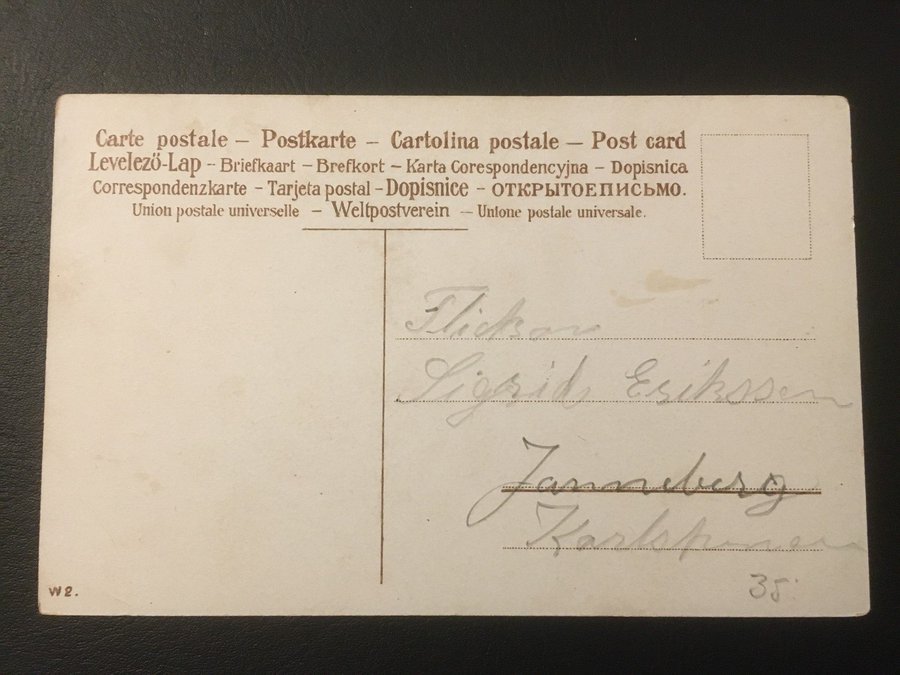 Carte postale – Postkarte – Cartolina postale – Post card
Levelező-Lap – Briefkaart – Brefkort – Karta Corespondencyjna – Dopisnica
Correspondenzkarte – Tarjeta postal – Dopisnice – ОТКРЫТОЕПИСЬМО.
Union postale universelle – Weltpostverein – Unione postale universale.
Flickan
Sigrid Eriksson
Janneberg
W 2.
35